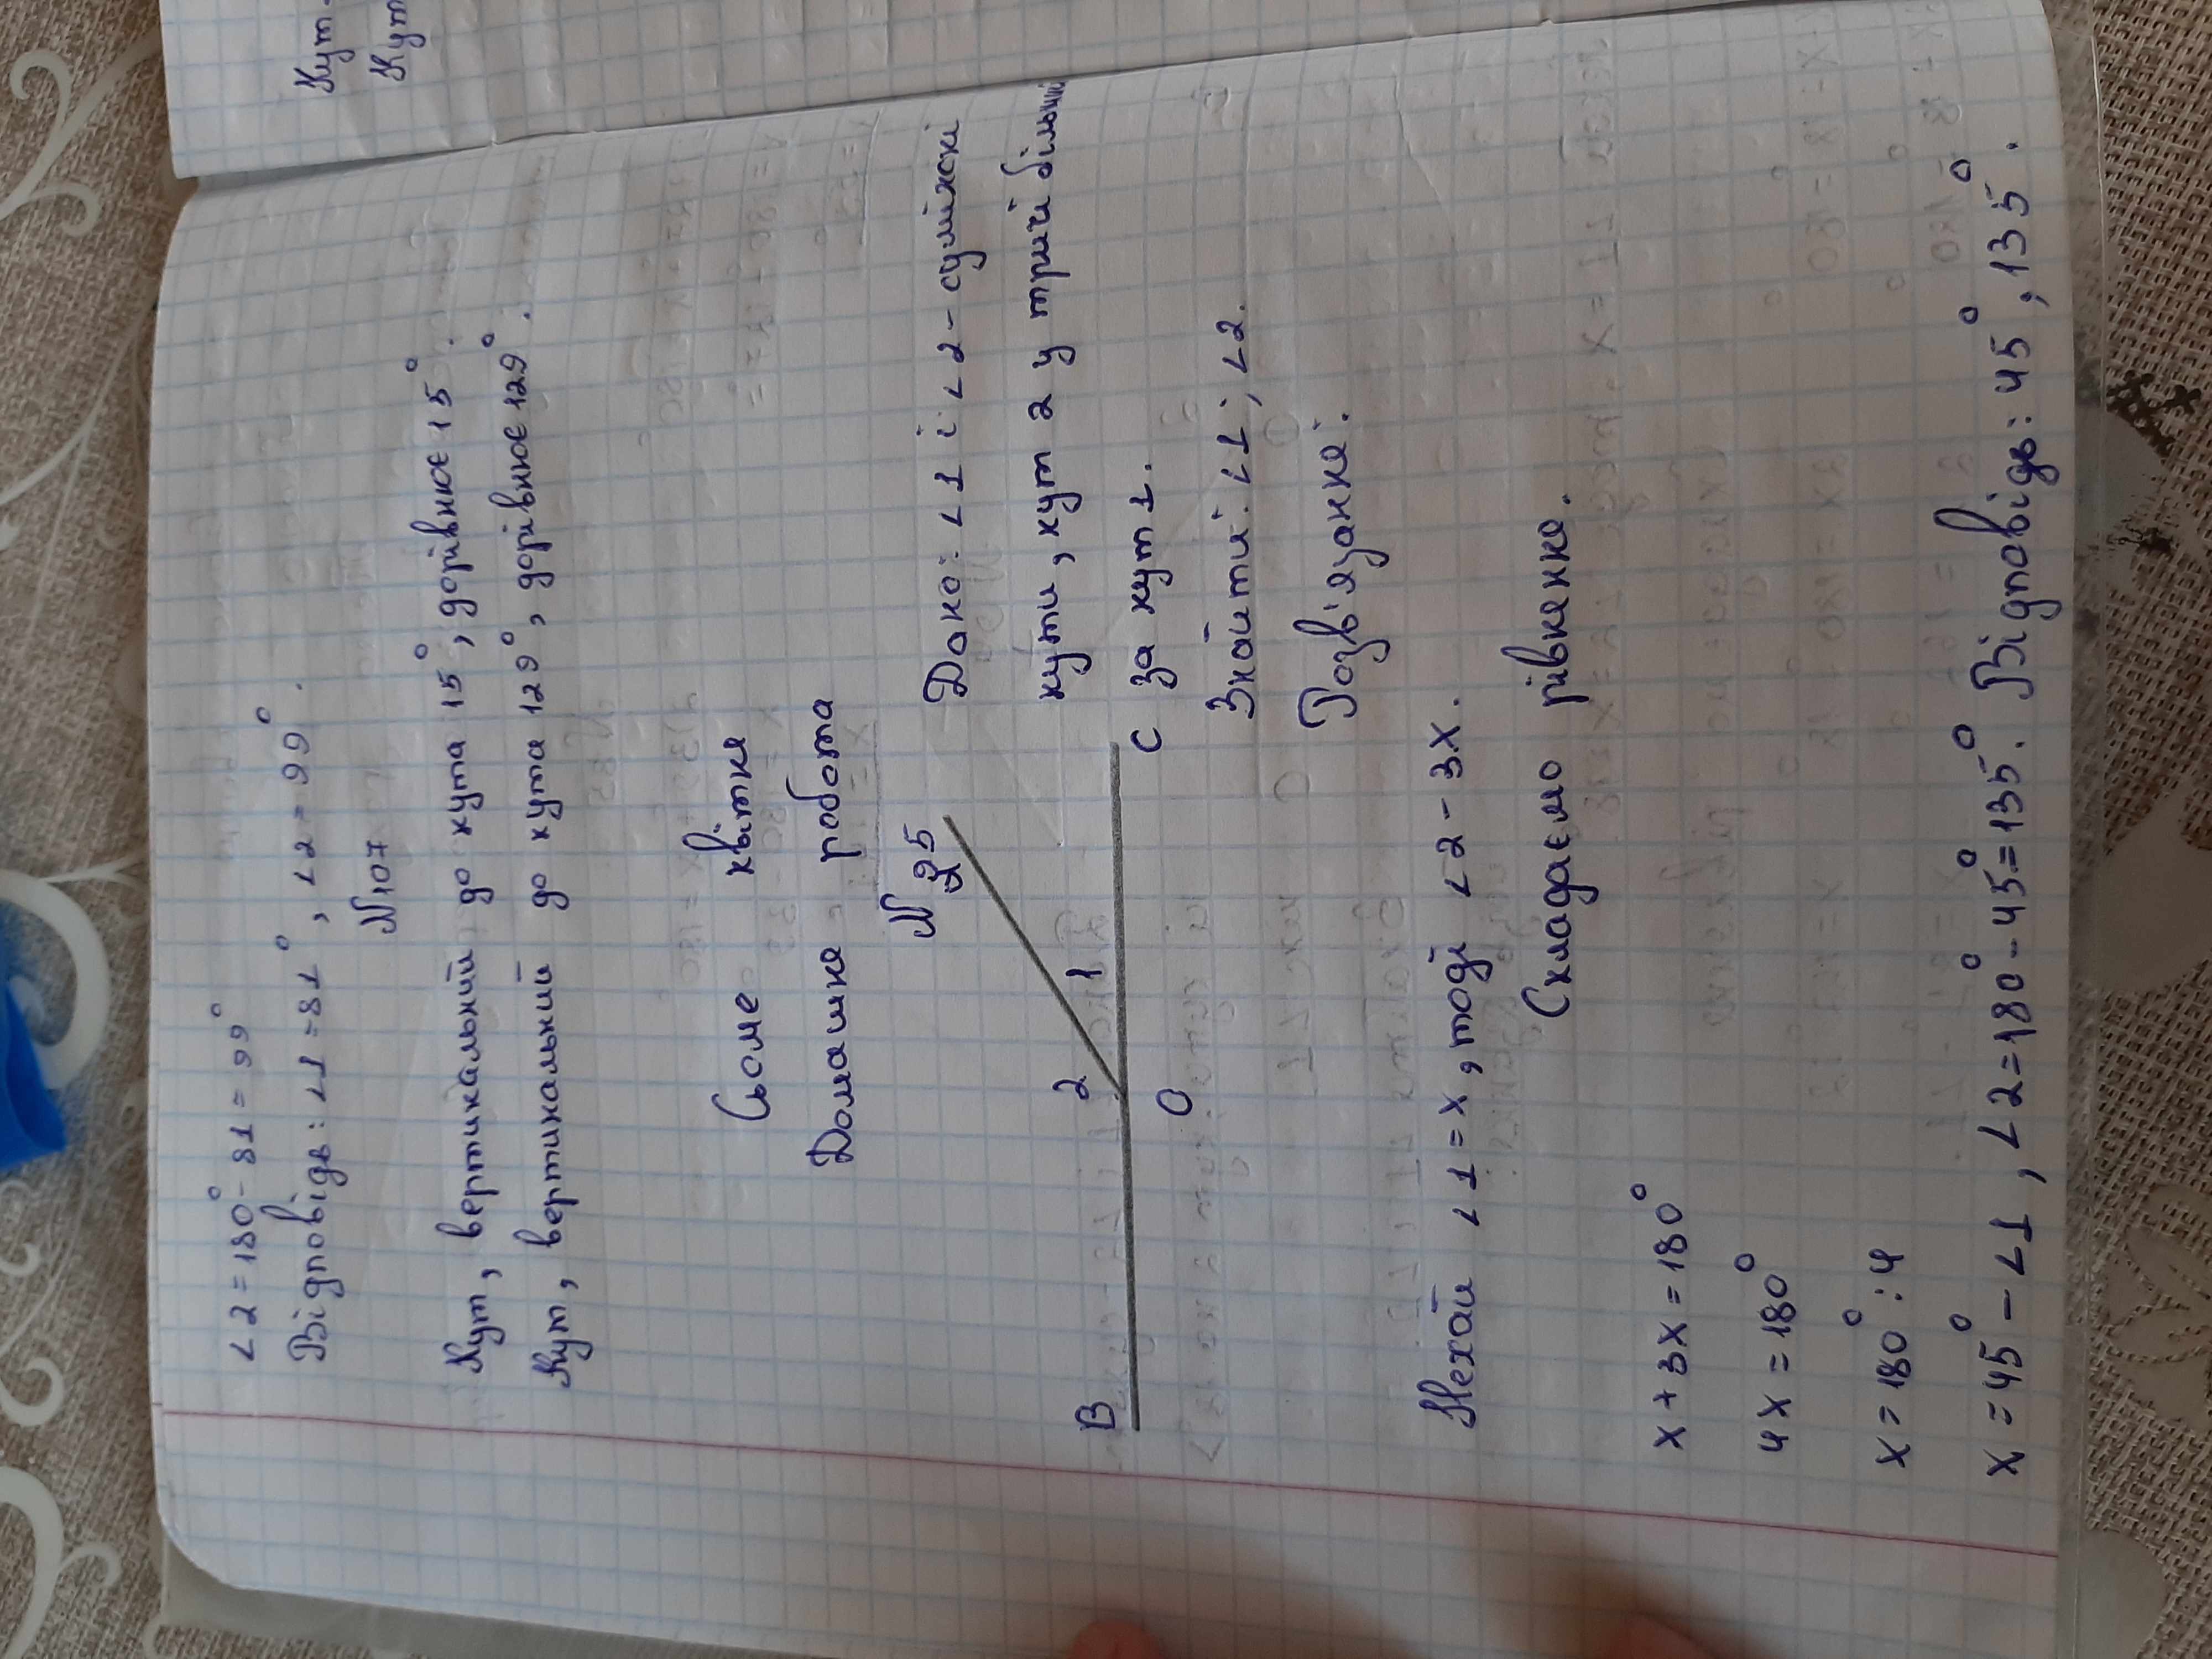 ∠2=180°-81=99°
Відповідь: ∠1=81°, ∠2=99°.
N107
Кут, вертикальний до кута 15°, дорівнює 15°.
Кут, вертикальний до кута 129°, дорівнює 129°.
Сьоме квітня
Домашня робота
N 225
Дано: ∠1 і ∠2-суміжні
кути, кут 2 у тричі більший
за кут 1.
Знайти: ∠1; ∠2.
Розв'язання:
B
2
1
O
C
Нехай ∠1=x, тоді ∠2-3x.
Складаємо рівняння.
x+3x=180°
4x=180°
x=180°:4
x=45°-∠1, ∠2=180°-45°=135°. Відповідь: 45°, 135°.
Кут
Кут